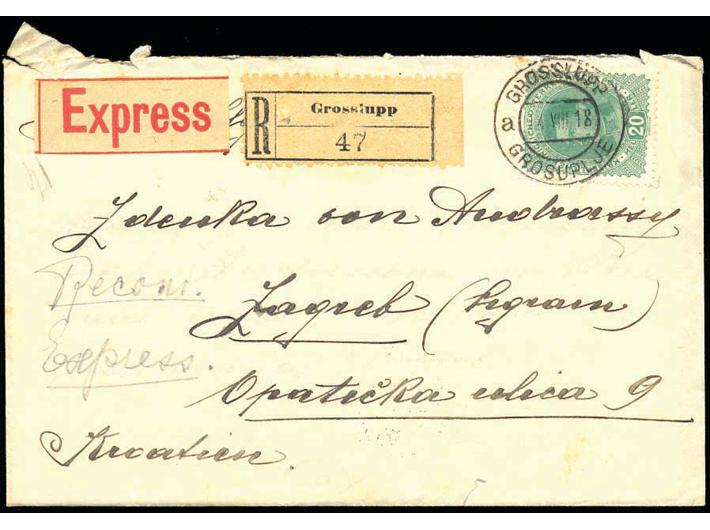 Express
R
Grosslupp
47
GROSSLUPP
a VIII 18
GROSUPLJE
20
Zdenka von Andrassy
Recom.
Zagreb (Agram)
Express.
Opatička ulica 9
Kroatien.